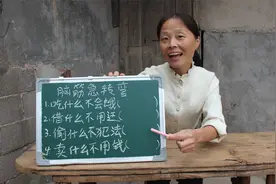 脑筋急转弯
1.吃什么不会饿（ ）
2.借什么不用还（ ）
3.偷什么不犯法（ ）
4.卖什么不用钱（ ）